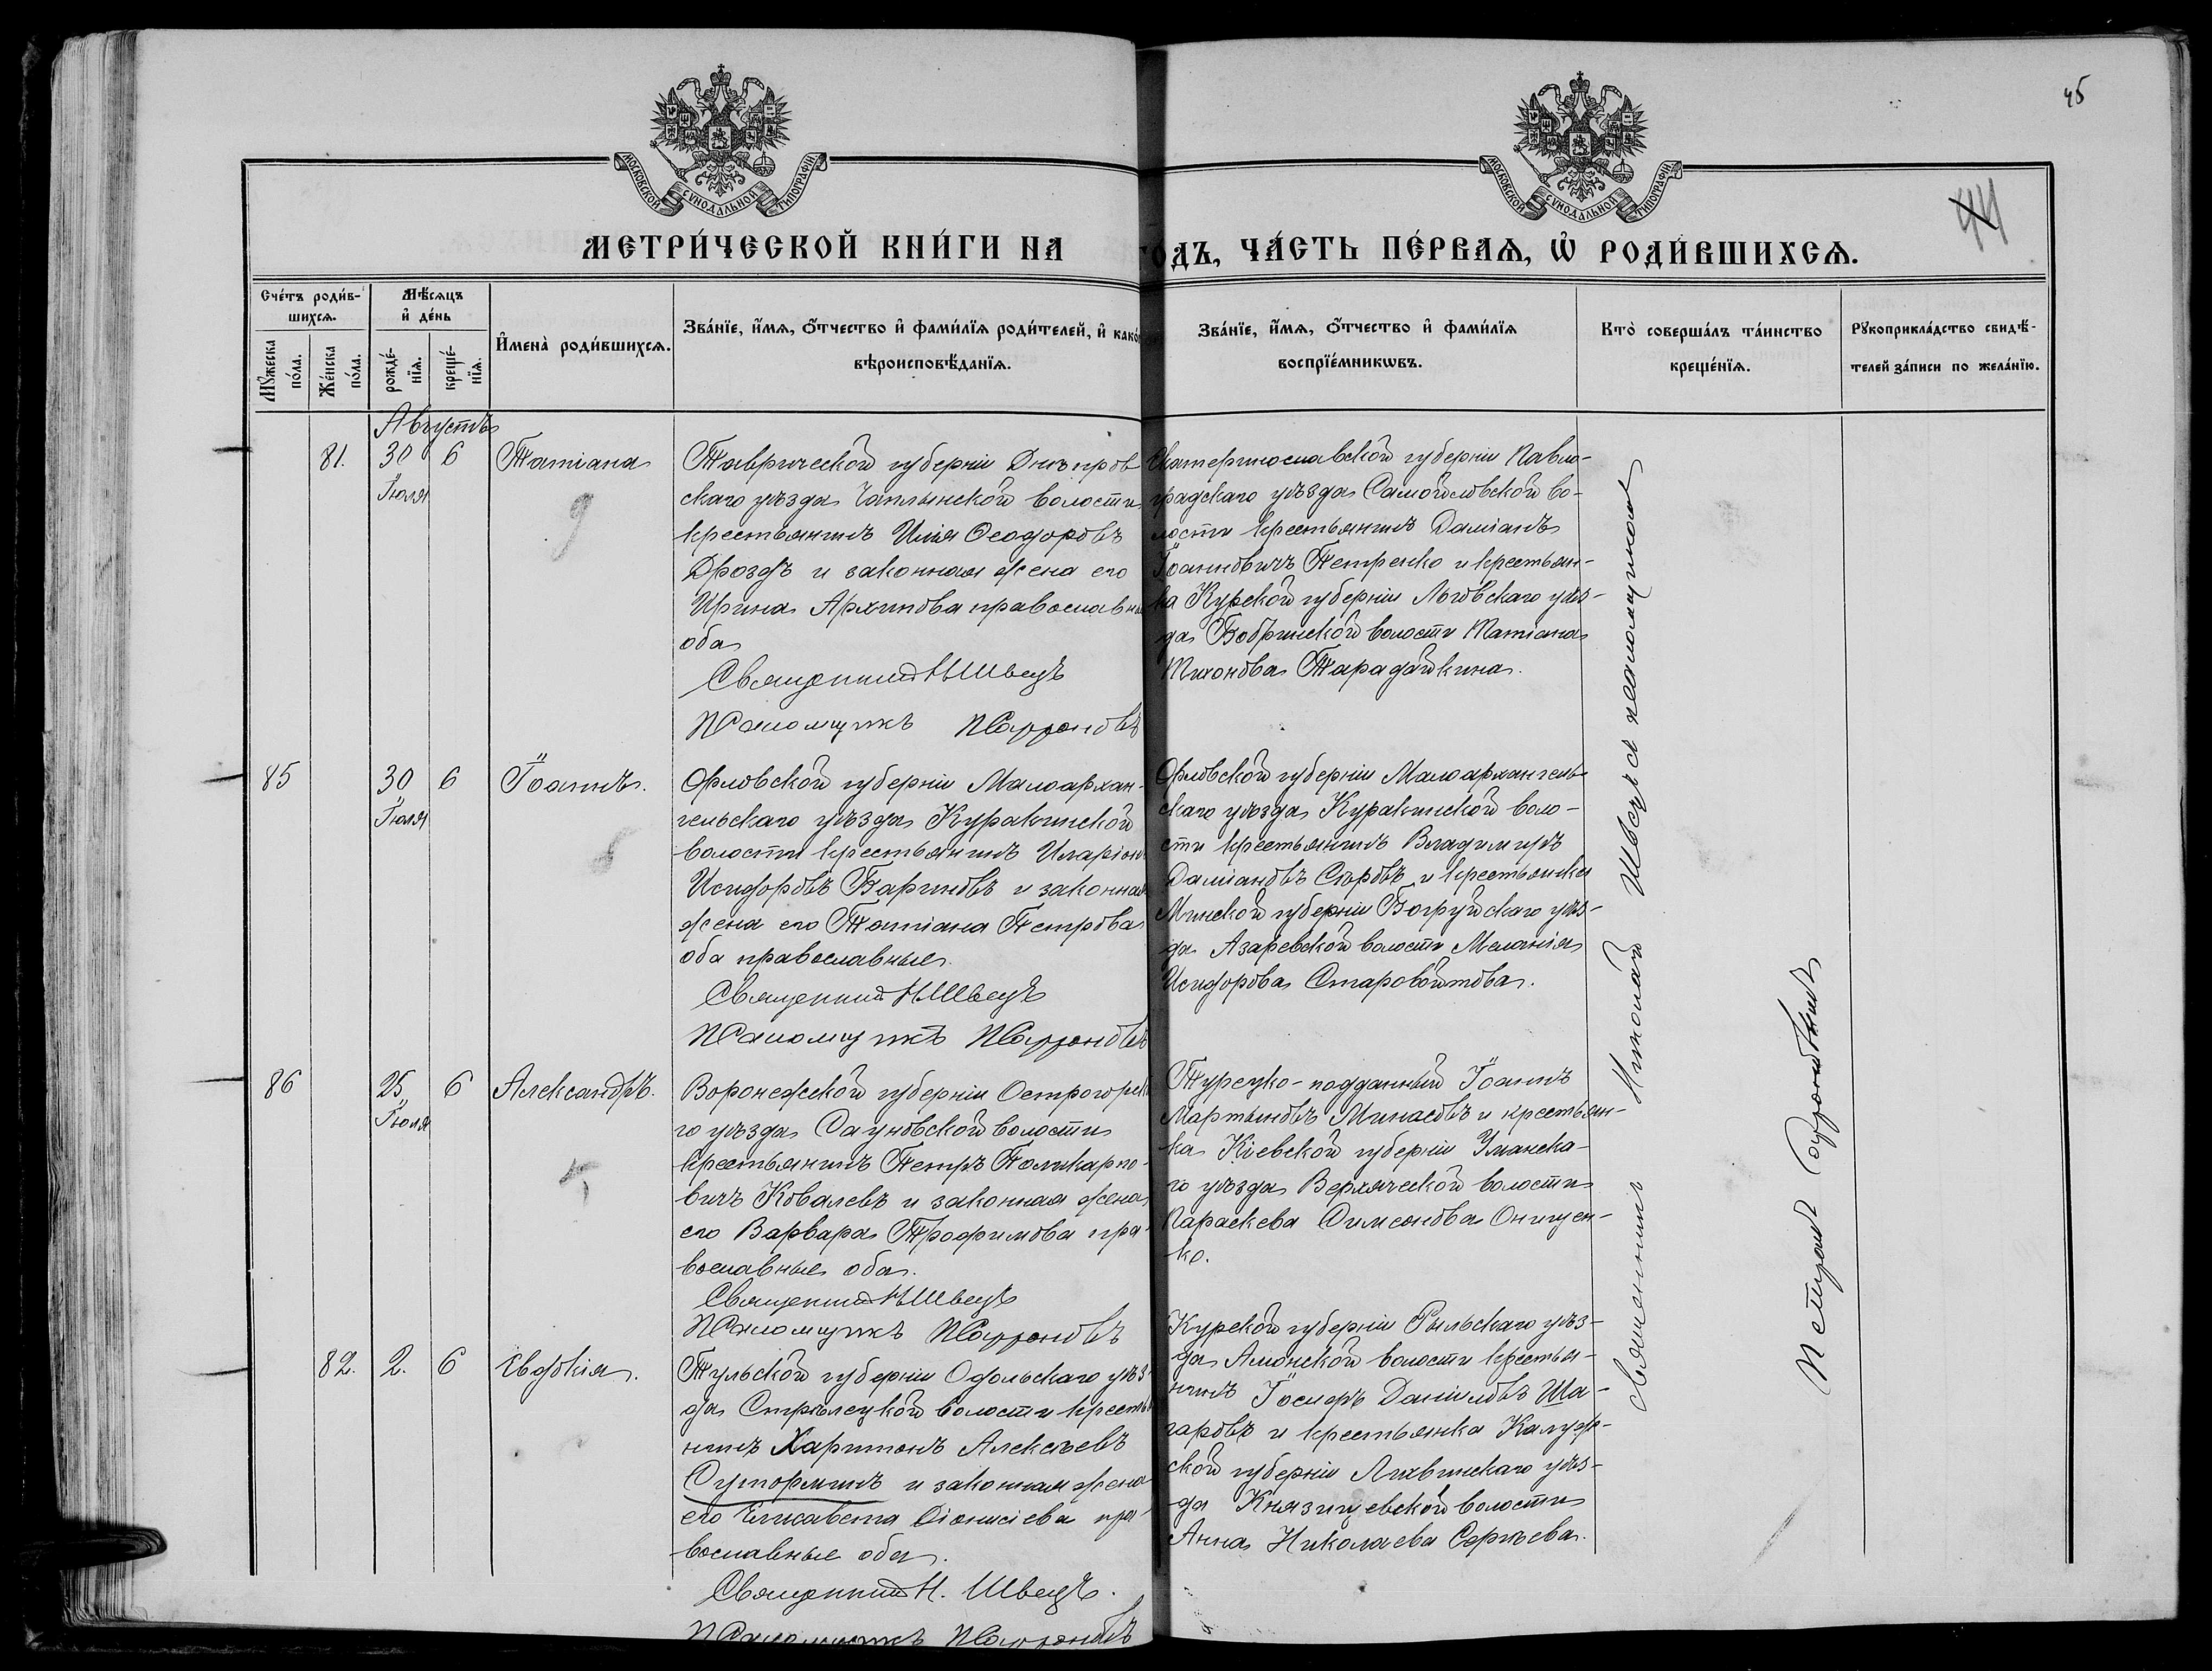 45
44
МОСКОВСКОЙ СѴНОДАЛЬНОЙ ТИПОГРАФІИ
МОСКОВСКОЙ СѴНОДАЛЬНОЙ ТИПОГРАФІИ
МЕТРИ́ЧЕСКОЙ КНИ́ГИ НА ГОДЪ, ЧА́СТЬ ПЕ́РВАѦ, Ѡ҆ РОДИ́ВШИХСѦ.
Сче́тъ роди́в-
шихсѧ.
Мꙋ́жеска по́ла.
Же́нска по́ла.
Мѣ́сѧцъ
и҆ де́нь
рожде́-
нїѧ.
креще́-
нїѧ.
И҆мена̀ роди́вшихсѧ.
Зва́нїе, и҆́мѧ, ѻ҆́тчество и҆ фами́лїѧ роди́телей, и҆ како́
вѣроисповѣ́данїѧ.
Зва́нїе, и҆́мѧ, ѻ҆́тчество и҆ фами́лїѧ
воспрїе́мникωвъ.
Кто̀ соверша́лъ та́инство
креще́нїѧ.
Рꙋкоприкла́дство свидѣ́-
телей за́писи по жела́нїю.
Августъ
81.
30 Іюля
6
Татіана
Таврической губерніи Днѣпров
скаго уѣзда Чаплынской волости
крестьянинъ Илія Ѳеодоровъ
Дроздъ и законная жена его
Ирина Архипова православные
оба
Священникъ Н Швецъ
Псаломщикъ П Сафроновъ
Екатеринославской губерніи Павло-
градскаго уѣзда Самойловской во-
лости крестьянинъ Даміанъ
Іоанновичъ Петренко и крестьян-
ка Курской губерніи Льговскаго уѣз-
да Бобринской волости Татіана
Тихонова Тарадайкина.
85
30 Іюля
6
Іоаннъ.
Орловской губерніи Малоархан-
гельскаго уѣзда Куракинской
волости крестьянинъ Иларіонъ
Исидоровъ Бариновъ и законная
жена его Татіана Петрова
оба православные
Священникъ Н Швецъ
Псаломщикъ П Сафроновъ
Орловской губерніи Малоархангель
скаго уѣзда Куракинской воло-
сти крестьянинъ Владимиръ
Даміановъ Сѣровъ и крестьянка
Минской губерніи Богруйскаго уѣз-
да Азаревской волости Меланія
Исидорова Старовойтова.
86
25 Іюля
6
Александръ.
Воронежской губерніи Острогорска
го уѣзда Сауновской волости
крестьянинъ Петръ Поликарпо-
вичъ Ковалевъ и законная жена
его Варвара Трофимова пра-
вославные оба.
Священникъ Н Швецъ
Псаломщикъ П Сафроновъ
Турецко-подданный Іоаннъ
Мартыновъ Минаевъ и крестьян-
ка Кіевской губерніи Уманска-
го уѣзда Верхяческой волости
Параскева Симеонова Онищен-
ко.
82.
2.
6
Евдокія.
Тульской губерніи Одольскаго уѣз-
да Стрѣлецкой волости крестья
нинъ Харитонъ Алексѣевъ
Суторминъ и законная жена
его Елисавета Діонисіева пра-
вославные оба.
Священникъ Н. Швецъ.
Псаломщикъ П Сафроновъ
Курской губерніи Рыльскаго уѣз-
да Амонской волости крестья-
нинъ Іосифъ Даніиловъ Ша-
гаровъ и крестьянка Калуж-
ской губерніи Лихвинскаго уѣз-
да Князищевской волости
Анна Николаева Сергѣева.
Священникъ Николай Швецъ съ псаломщикомъ
Петромъ Сафроновымъ